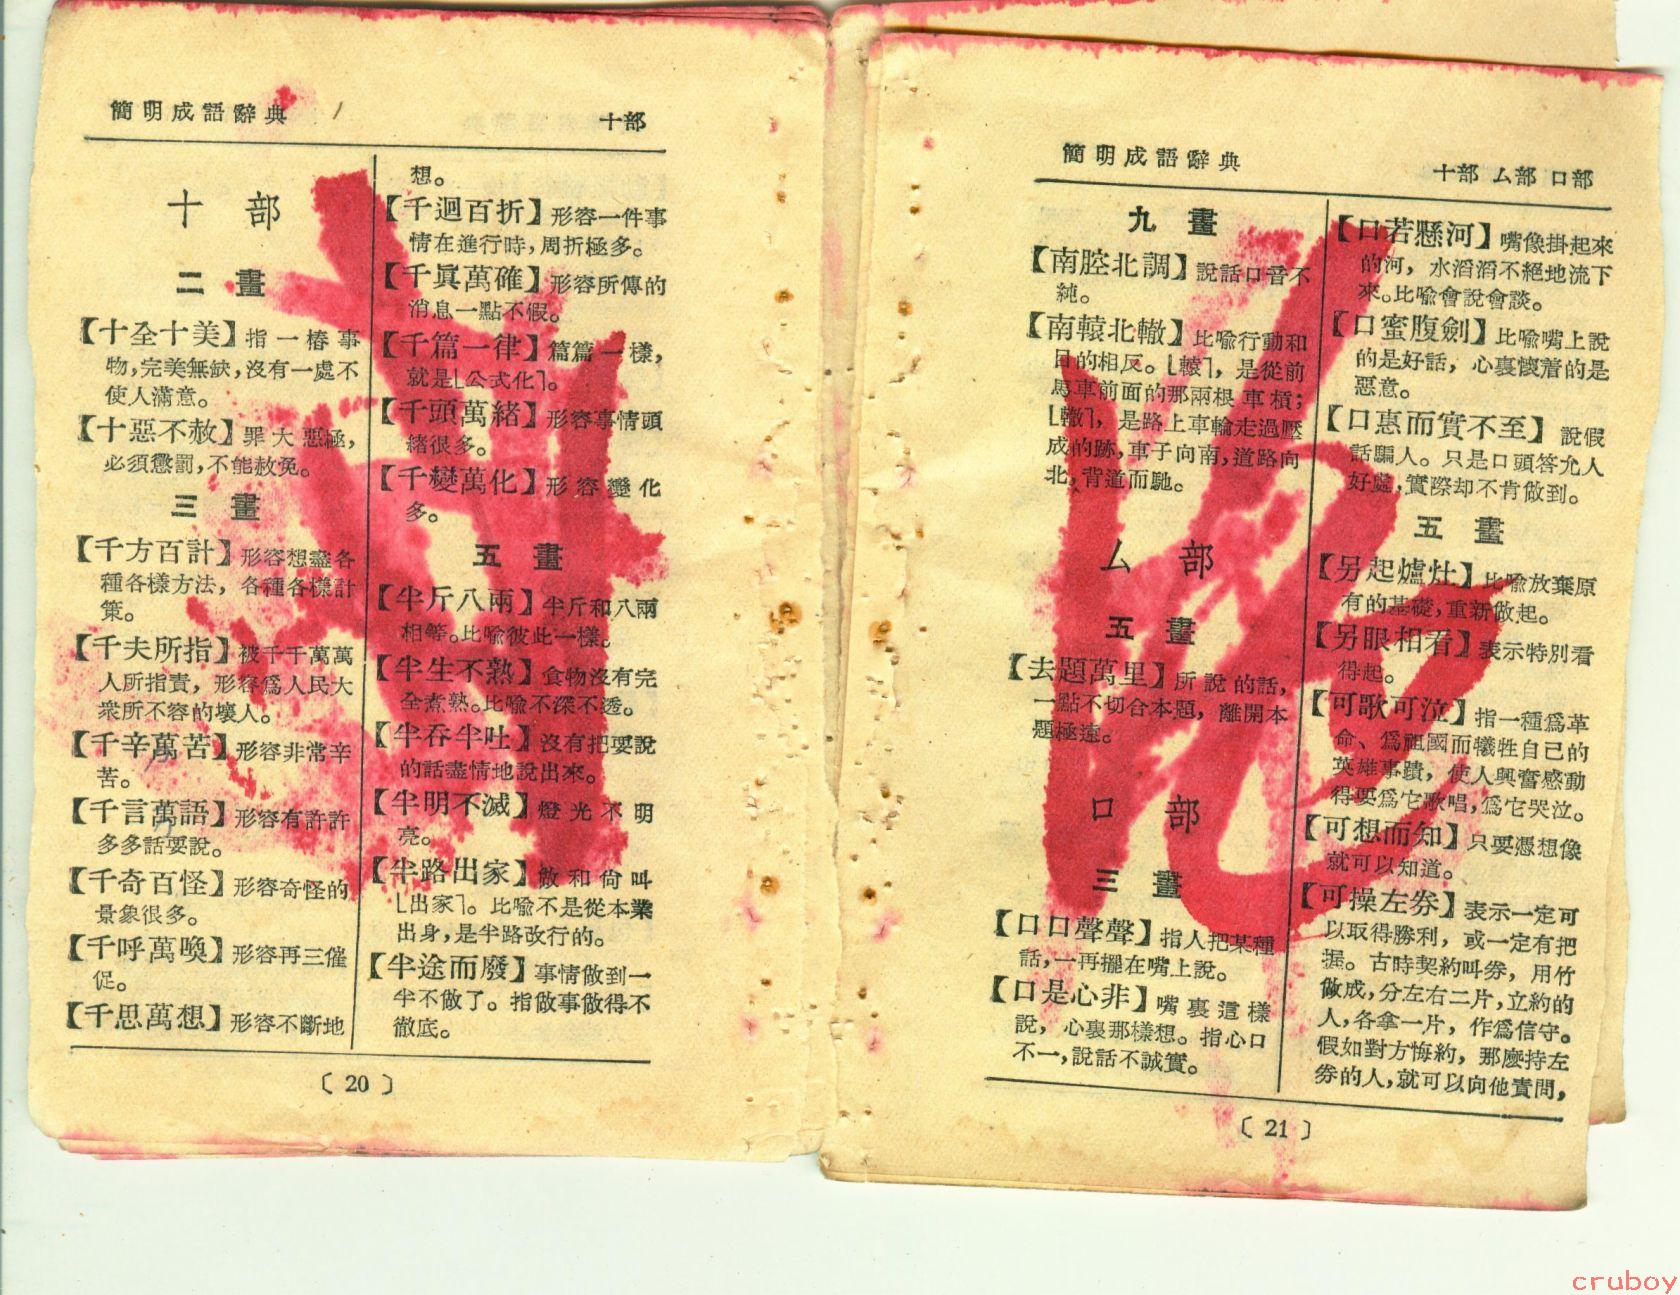 簡明成語辭典
十部
十 部
二 畫
【十全十美】指一樁事
物,完美無缺,沒有一處不
使人滿意。
【十惡不赦】罪大惡極,
必須懲罰,不能赦免。
三 畫
【千方百計】形容想盡各
種各樣方法,各種各樣計
策。
【千夫所指】被千千萬萬
人所指責,形容爲人民大
衆所不容的壞人。
【千辛萬苦】形容非常辛
苦。
【千言萬語】形容有許許
多多話要說。
【千奇百怪】形容奇怪的
景象很多。
【千呼萬喚】形容再三催
促。
【千思萬想】形容不斷地
想。
【千迴百折】形容一件事
情在進行時,周折極多。
【千眞萬確】形容所傳的
消息一點不假。
【千篇一律】篇篇一樣,
就是⌊公式化⌉。
【千頭萬緒】形容事情頭
緒很多。
【千變萬化】形容變化
多。
五 畫
【半斤八兩】半斤和八兩
相等。比喩彼此一樣。
【半生不熟】食物沒有完
全煮熟。比喩不深不透。
【半吞半吐】沒有把要說
的話盡情地說出來。
【半明不滅】燈光不明
亮。
【半路出家】做和尙叫
⌊出家⌉。比喩不是從本業
出身,是半路改行的。
【半途而廢】事情做到一
半不做了。指做事做得不
徹底。
〔 20 〕
簡明成語辭典
十部 厶部 口部
九 畫
【南腔北調】說話口音不
純。
【南轅北轍】比喩行動和
目的相反。⌊轅⌉,是從前
馬車前面的那兩根車槓;
⌊轍⌉,是路上車輪走過壓
成的跡,車子向南,道路向
北,背道而馳。
厶 部
五 畫
【去題萬里】所說的話,
一點不切合本題,離開本
題極遠。
口 部
三 畫
【口口聲聲】指人把某種
話,一再擺在嘴上說。
【口是心非】嘴裏這樣
說,心裏那樣想。指心口
不一,說話不誠實。
【口若懸河】嘴像掛起來
的河,水滔滔不絕地流下
來。比喩會說會談。
【口蜜腹劍】比喩嘴上說
的是好話,心裏懷着的是
惡意。
【口惠而實不至】說假
話騙人。只是口頭答允人
好處,實際却不肯做到。
五 畫
【另起爐灶】比喩放棄原
有的基礎,重新做起。
【另眼相看】表示特別看
得起。
【可歌可泣】指一種爲革
命、爲祖國而犧牲自己的
英雄事蹟,使人興奮感動
得要爲它歌唱,爲它哭泣。
【可想而知】只要憑想像
就可以知道。
【可操左券】表示一定可
以取得勝利,或一定有把
握。古時契約叫券,用竹
做成,分左右二片,立約的
人,各拿一片,作爲信守。
假如對方悔約,那麼持左
券的人,就可以向他責問,
〔 21 〕
cruboy